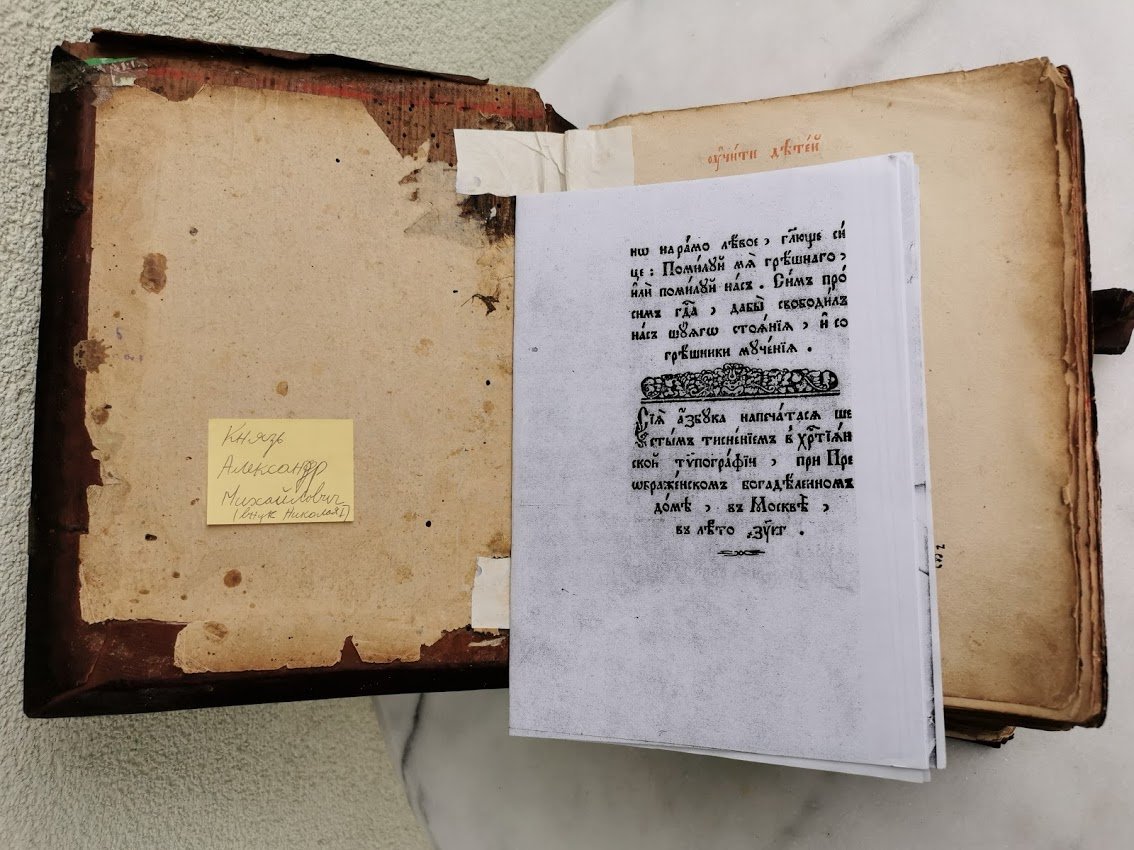 Князь
Александр
Михайлович
(внук Николая I)
ᲂу҆чи́ти дѣте́й
нѡ на ра́мо лѣ́вое, гл҃юще си́
це: Поми́лꙋй мѧ̀ грѣ́шнаго,
и҆лѝ поми́лꙋй на́съ. Си́мъ про́
симъ гдⷭ҇а, дабы̀ свободи́лъ
на́съ шꙋ́ѧгѡ стоѧ́нїѧ, и҆ со
грѣ́шники мꙋче́нїѧ.
Сїѧ̀ а҆́збꙋка напеча́тасѧ ше
сты́мъ тисне́нїемъ в̾ хрⷭ҇тїѧ́н
ской тѷпогра́фїи, при Пре
ѡбраже́нскомъ богадѣ́леномъ
до́мѣ, въ Москвѣ̀,
въ лѣ́то